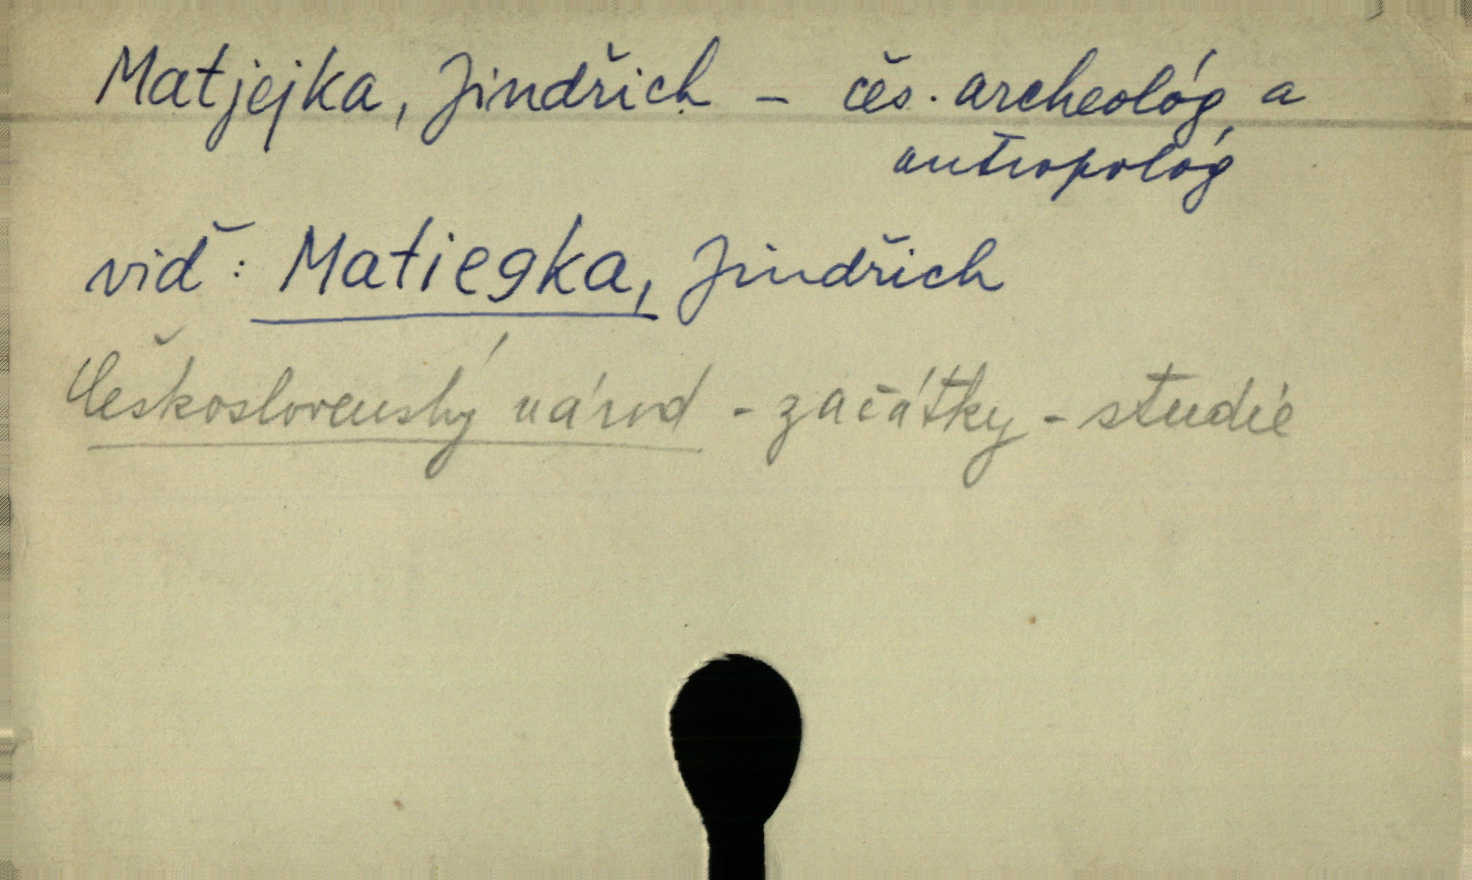 Matjejka, Jindřich – čes. archeológ a
antropológ
viď: Matiegka, Jindřich
Československý národ - začátky - studie